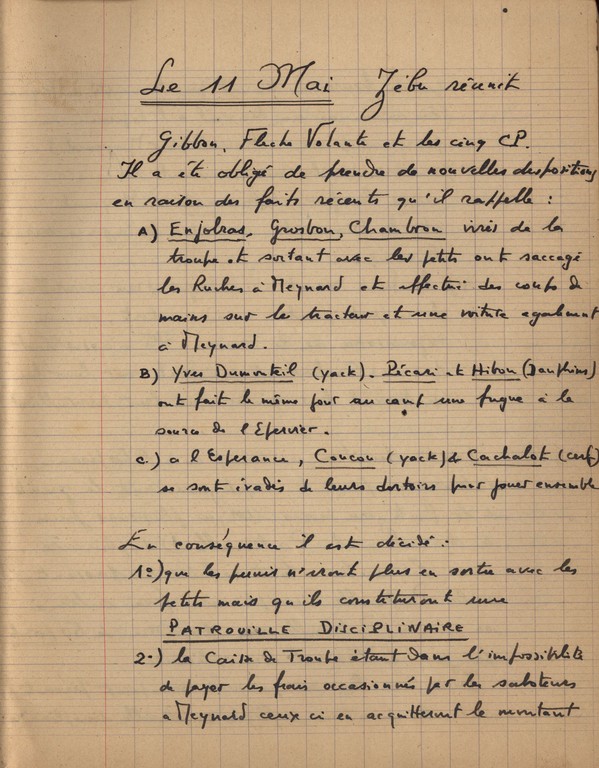 Le 11 Mai Zébu réunit
Gibbon, Fleche Volante et les cinq CP.
Il a été obligé de prendre de nouvelles dispositions
en raison des faits récents qu'il rappelle :
A) Enjolras, Grosbon, Chambron virés de la
troupe et sortant avec les petits ont saccagé
les Ruches à Meynard et effectué des coups de
mains sur le tracteur et une voiture egalement
à Meynard.
B) Yves Dumonteil (yack). Pécari et Hibou (Dauphins)
ont fait le même jour au camp une fugue à la
source de l'Epervier.
c.) a l'Esperance, Coucou (yack) & Cachalot (cerf)
se sont évadés de leurs dortoirs pour jouer ensemble
En conséquence il est décidé :
1º) que les punis n'iront plus en sortie avec les
petits mais qu'ils constitueront une
PATROUILLE DISCIPLINAIRE
2º) la Caisse de Troupe étant dans l'impossibilité
de payer les frais occasionnés par les saboteurs
a Meynard ceux ci en acquitteront le montant